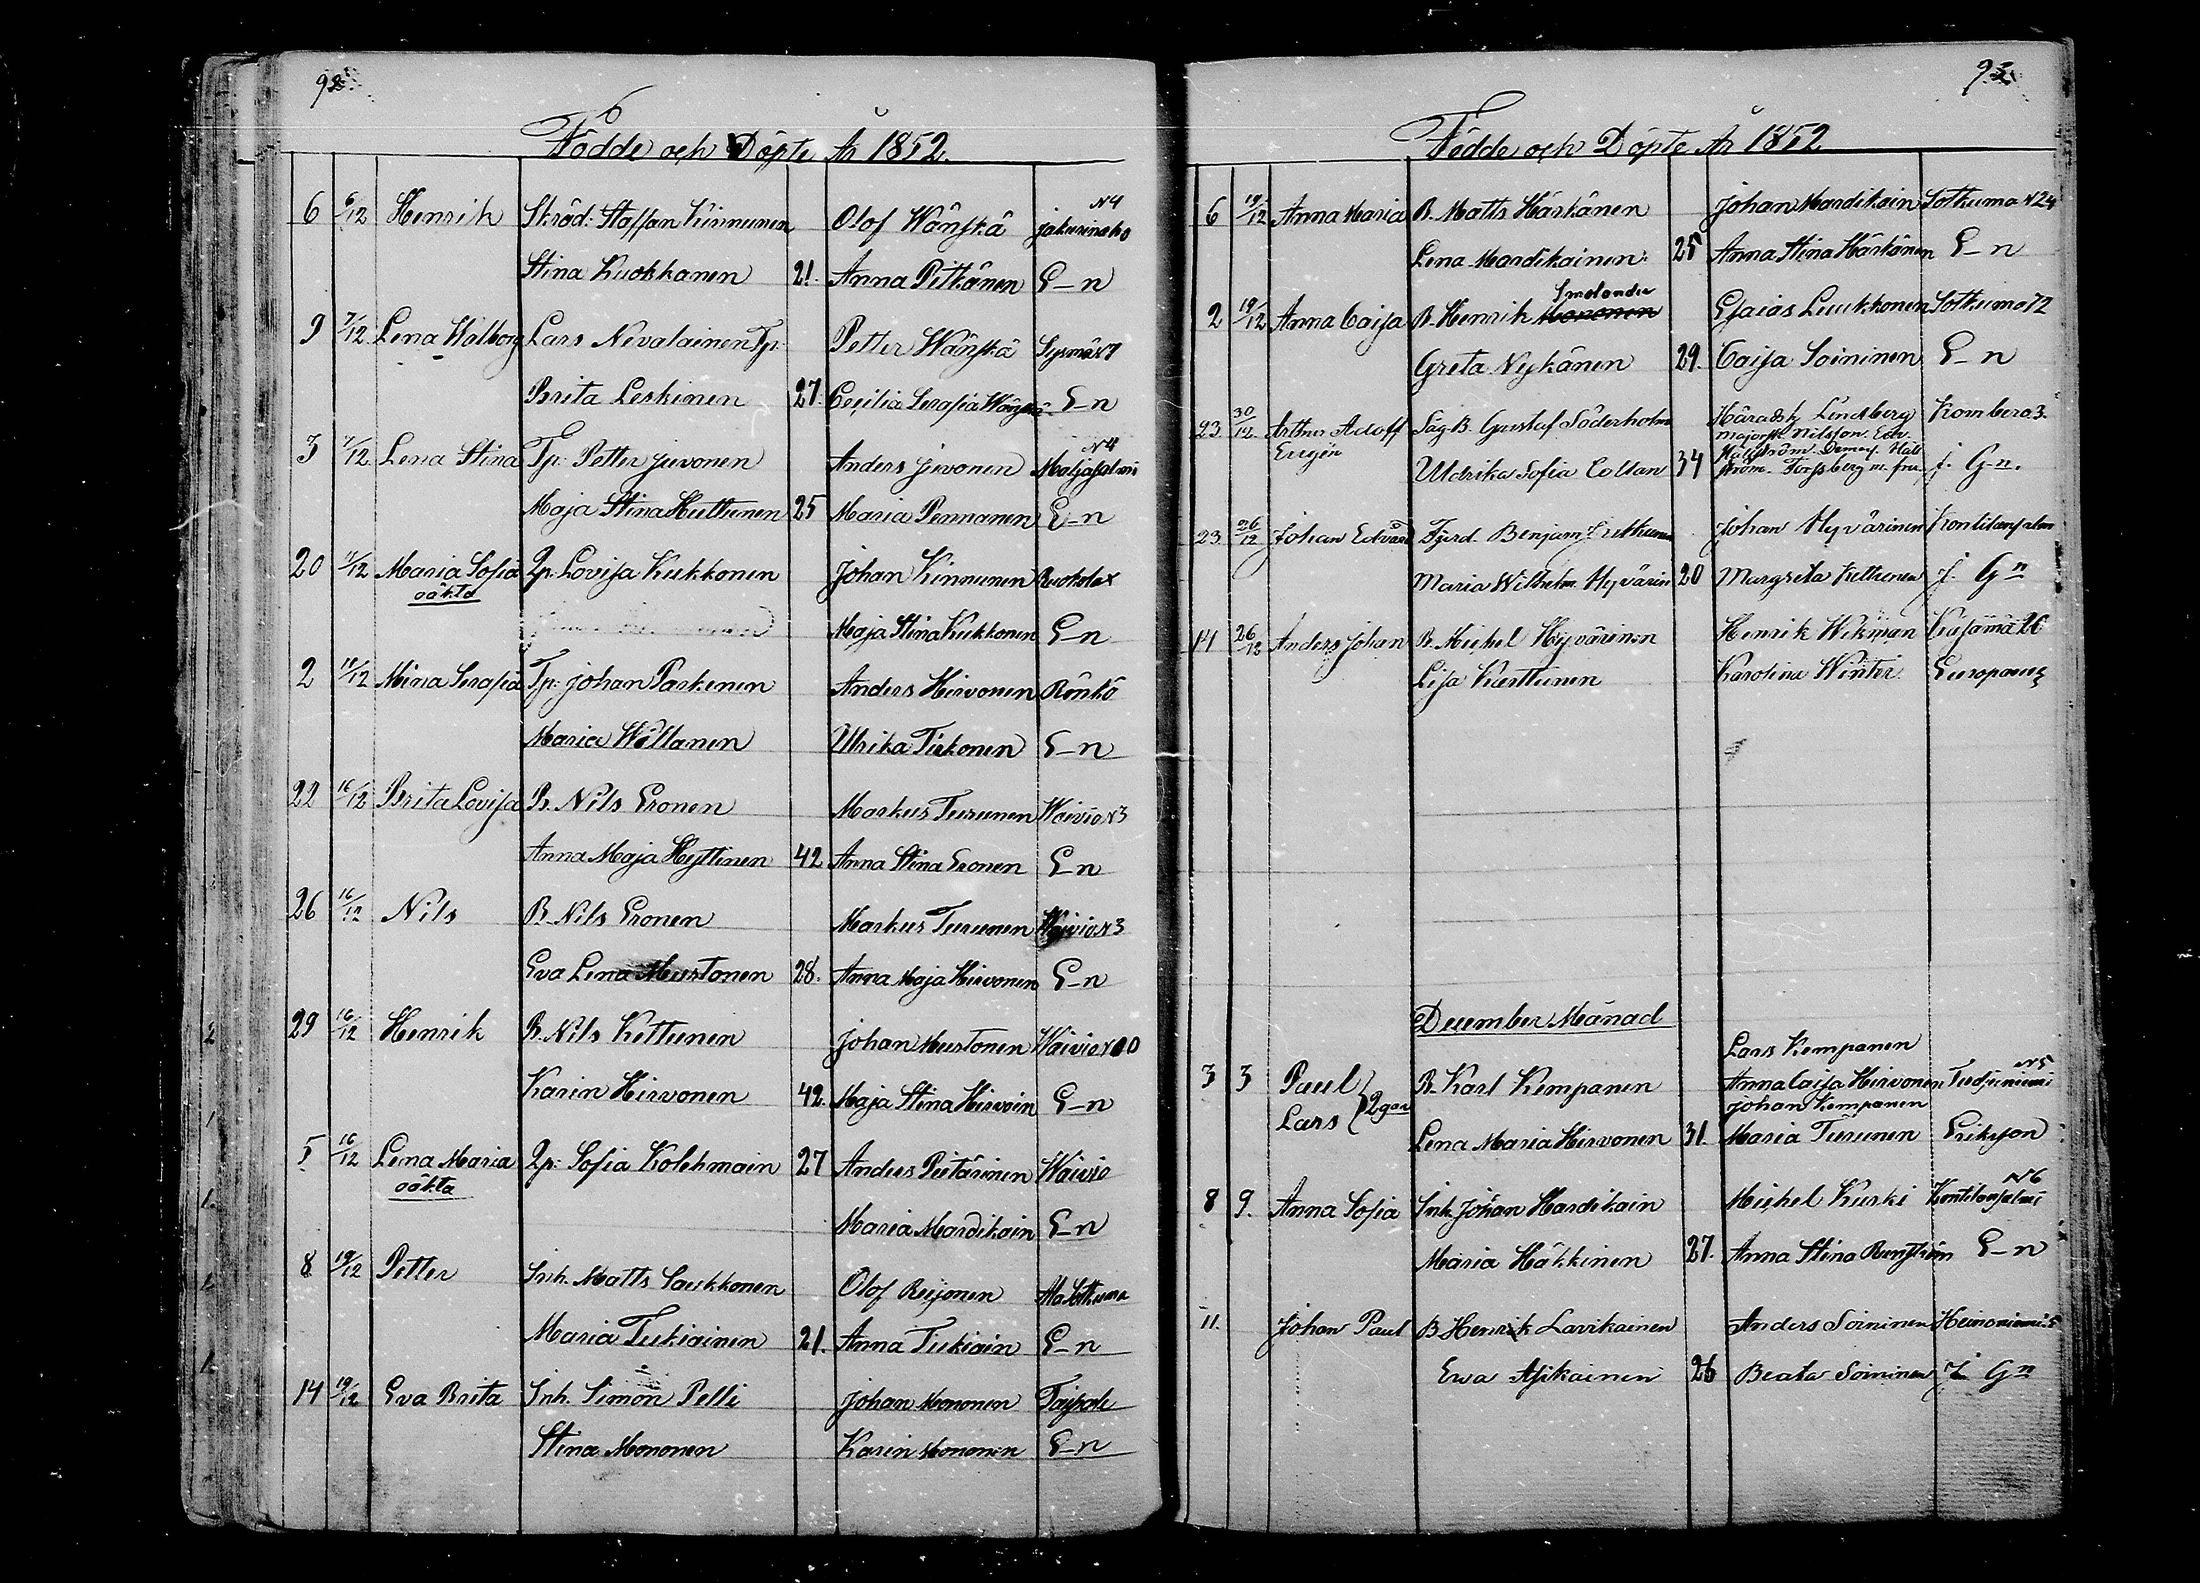 92
Födde och Döpte År 1852
6 6/12 Henrik Skräd: Staffan Kinnunen Olof Wänskä N4 Jakurinaho
Stina Kuokkanen 21. Anna Pitkänen E-n
9 7/12 Lena Walborg Lars Nevalainen Tp. Petter Wänskä Sysmä N7
Brita Leskinen 27. Cecilia Serafia Wänskä E-n
3 7/12 Lena Stina Tp. Petter Juvonen Anders Juvonen N4 Maljasalmi
Maja Stina Huttunen 25 Maria Pennanen E-n
20 11/12 Maria Sofia Qp. Lovisa Kukkonen Johan Kinnunen Ruokola
oäkta
Maja Stina Kukkonen E-n
2 11/12 Mina Serafia Tp. Johan Parkinen Anders Hirvonen Rönkö
Maria Wällanen Ulrika Tirkonen E-n
22 16/12 Brita Lovisa B. Nils Eronen Markus Turunen Waivio N3
Anna Maja Hyttinen 42 Anna Stina Eronen E-n
26 16/12 Nils B. Nils Eronen Markus Turunen Waivio N3
Eva Lena Mustonen 28. Anna Maja Hirvonen E-n
29 16/12 Henrik B. Nils Kettunen Johan Mustonen Waivio
Karin Hirvonen 42. Maja Stina Hirvoin E-n
5 16/12 Lena Maria Qp. Sofia Kolehmain 27 Anders Pietärinen Waivio
oäkta
Maria Mardikain E-n
8 19/12 Petter Inh. Matts Saukkonen Olof Reijonen Ala Sotkuma
Maria Tukiainen 21. Anna Tukiain E-n
14 19/12 Eva Brita Inh. Simon Pelli Johan Mononen Taipale
Stina Mononen Karin Mononen E-n
93
Födde och Döpte År 1852
6 19/12 Anna Maria B. Matts Härkänen Johan Mardikain Sotkuma N24
Lena Mardikainen 25 Anna Stina Härkönen E-n
2 19/12 Anna Caisa B. Henrik Mononen Smolander Esaias Luukkonen Sotkuma 72
Greta Nykänen 29. Caisa Soininen E-n
23 30/12 Arthur Adolf Såg B. Gustaf Söderholm Häradsh Lindsberg Kombero 3.
Eugén majorsk Nilsson
Uldrika Sofia Coltan 34 ström. Forssberg m. fru f. G-n.
23 26/12 Johan Edvard Fjerd. Benjam Huttunen Johan Hyvärinen Kontilansalm
Maria Wilhelm. Hyvärin 20 Margreta Kettunen f. Gn
14 26/12 Anders Johan B. Michel Hyvärinen Henrik Wikman Kusämä 26
Lisa Karttunen Karolina Winter Europaeus
December Månad
Lars Kempanen
3 3 Paul B. Karl Kempanen Anna Caisa Hirvonen N5 Tudjuniemi
Lars 2gar Johan Kempanen
Lena Maria Hirvonen 31. Maria Turunen Eriksson
8 9. Anna Sofia Inh. Johan Mardikain Michel Kurki N6 Kontilansalmi
Maria Häkkinen 27. Anna Stina Bergström E-n
11. Johan Paul B. Henrik Lavikainen Anders Soininen Heinoniemi 5
Ewa Asikainen 26 Beata Soininen f Gn